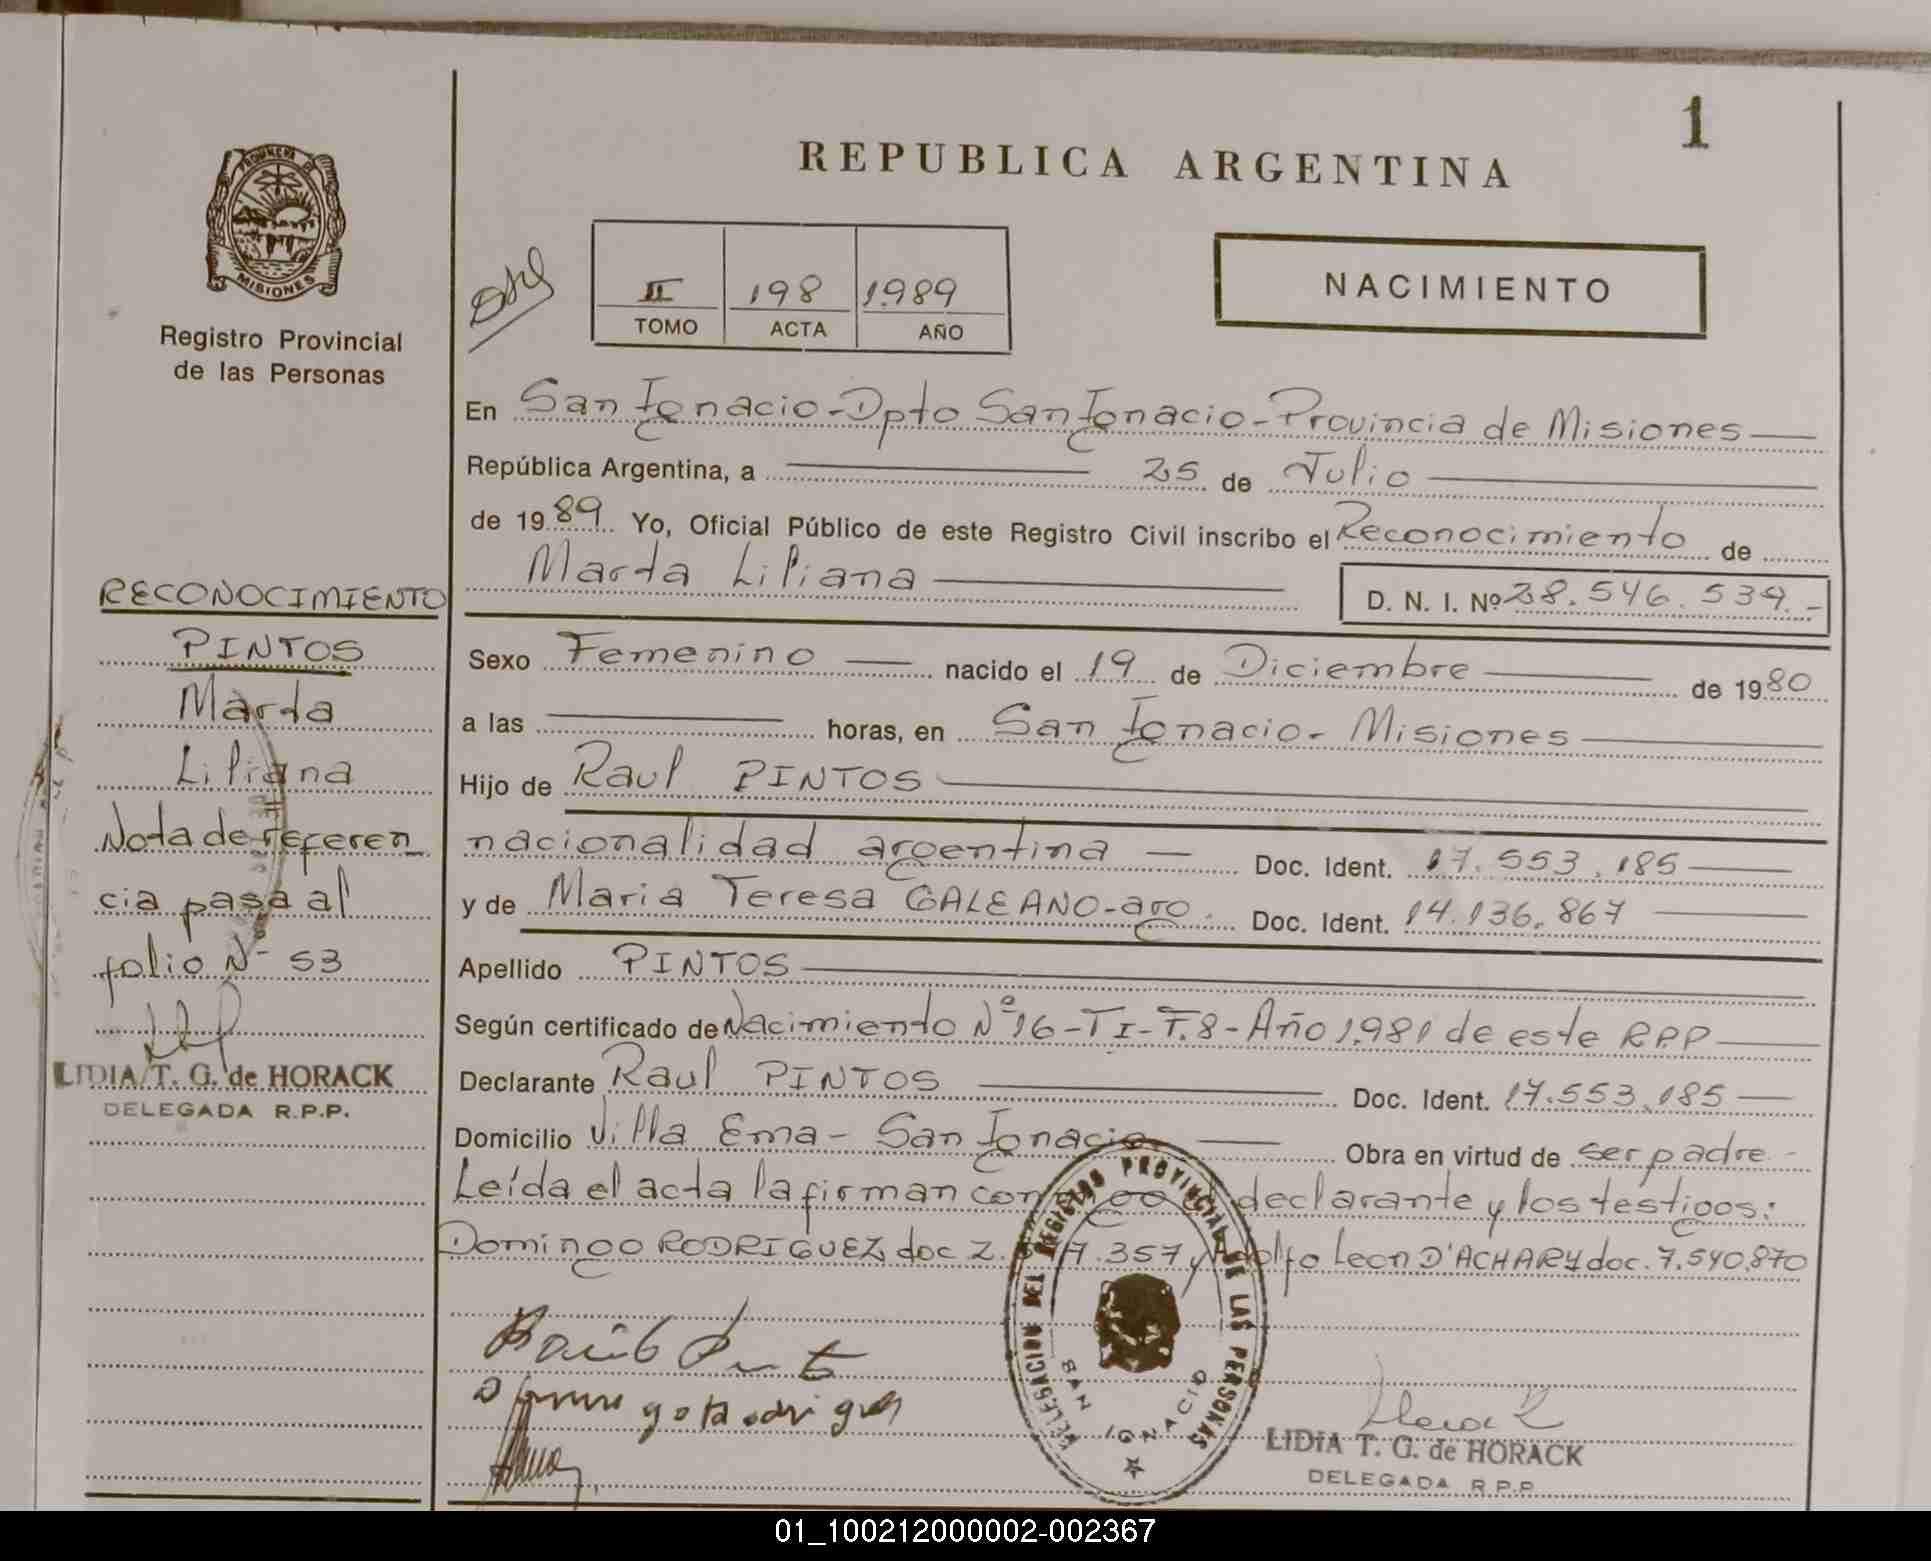 1
REPUBLICA ARGENTINA
PROVINCIA DE
MISIONES
Registro Provincial
de las Personas
II 198 1.989
TOMO ACTA AÑO
NACIMIENTO
En San Ignacio-Dpto San Ignacio-Provincia de Misiones
República Argentina, a 25 de Julio
de 1989 Yo, Oficial Público de este Registro Civil inscribo el Reconocimiento de
Marta Liliana
D. N. I. Nº 28.546.539.-
Sexo Femenino nacido el 19 de Diciembre de 1980
a las horas, en San Ignacio- Misiones
Hijo de Raul PINTOS
nacionalidad argentina — Doc. Ident. 17.553.185
y de Maria Teresa GALEANO-arg. Doc. Ident. 14.136.867
Apellido PINTOS
Según certificado de Nacimiento Nº 16-T I-F.8-Año 1.981 de este RPP
Declarante Raul PINTOS Doc. Ident. 17.553.185
Domicilio Villa Ema- San Ignacio Obra en virtud de ser padre-
Leída el acta la firman declarante y los testigos:
Domingo RODRIGUEZ doc 7.357 y Leon D'ACHARY doc. 7.540.870
RECONOCIMIENTO
PINTOS
Marta
Liliana
Nota de referen
cia pasa al
folio Nº 53
LIDIA T. G. de HORACK
DELEGADA R.P.P.
DELEGACION DEL REGISTRO PROVINCIAL DE LAS PERSONAS
SAN IGNACIO
LIDIA T. G. de HORACK
DELEGADA R.P.P.
01_100212000002-002367